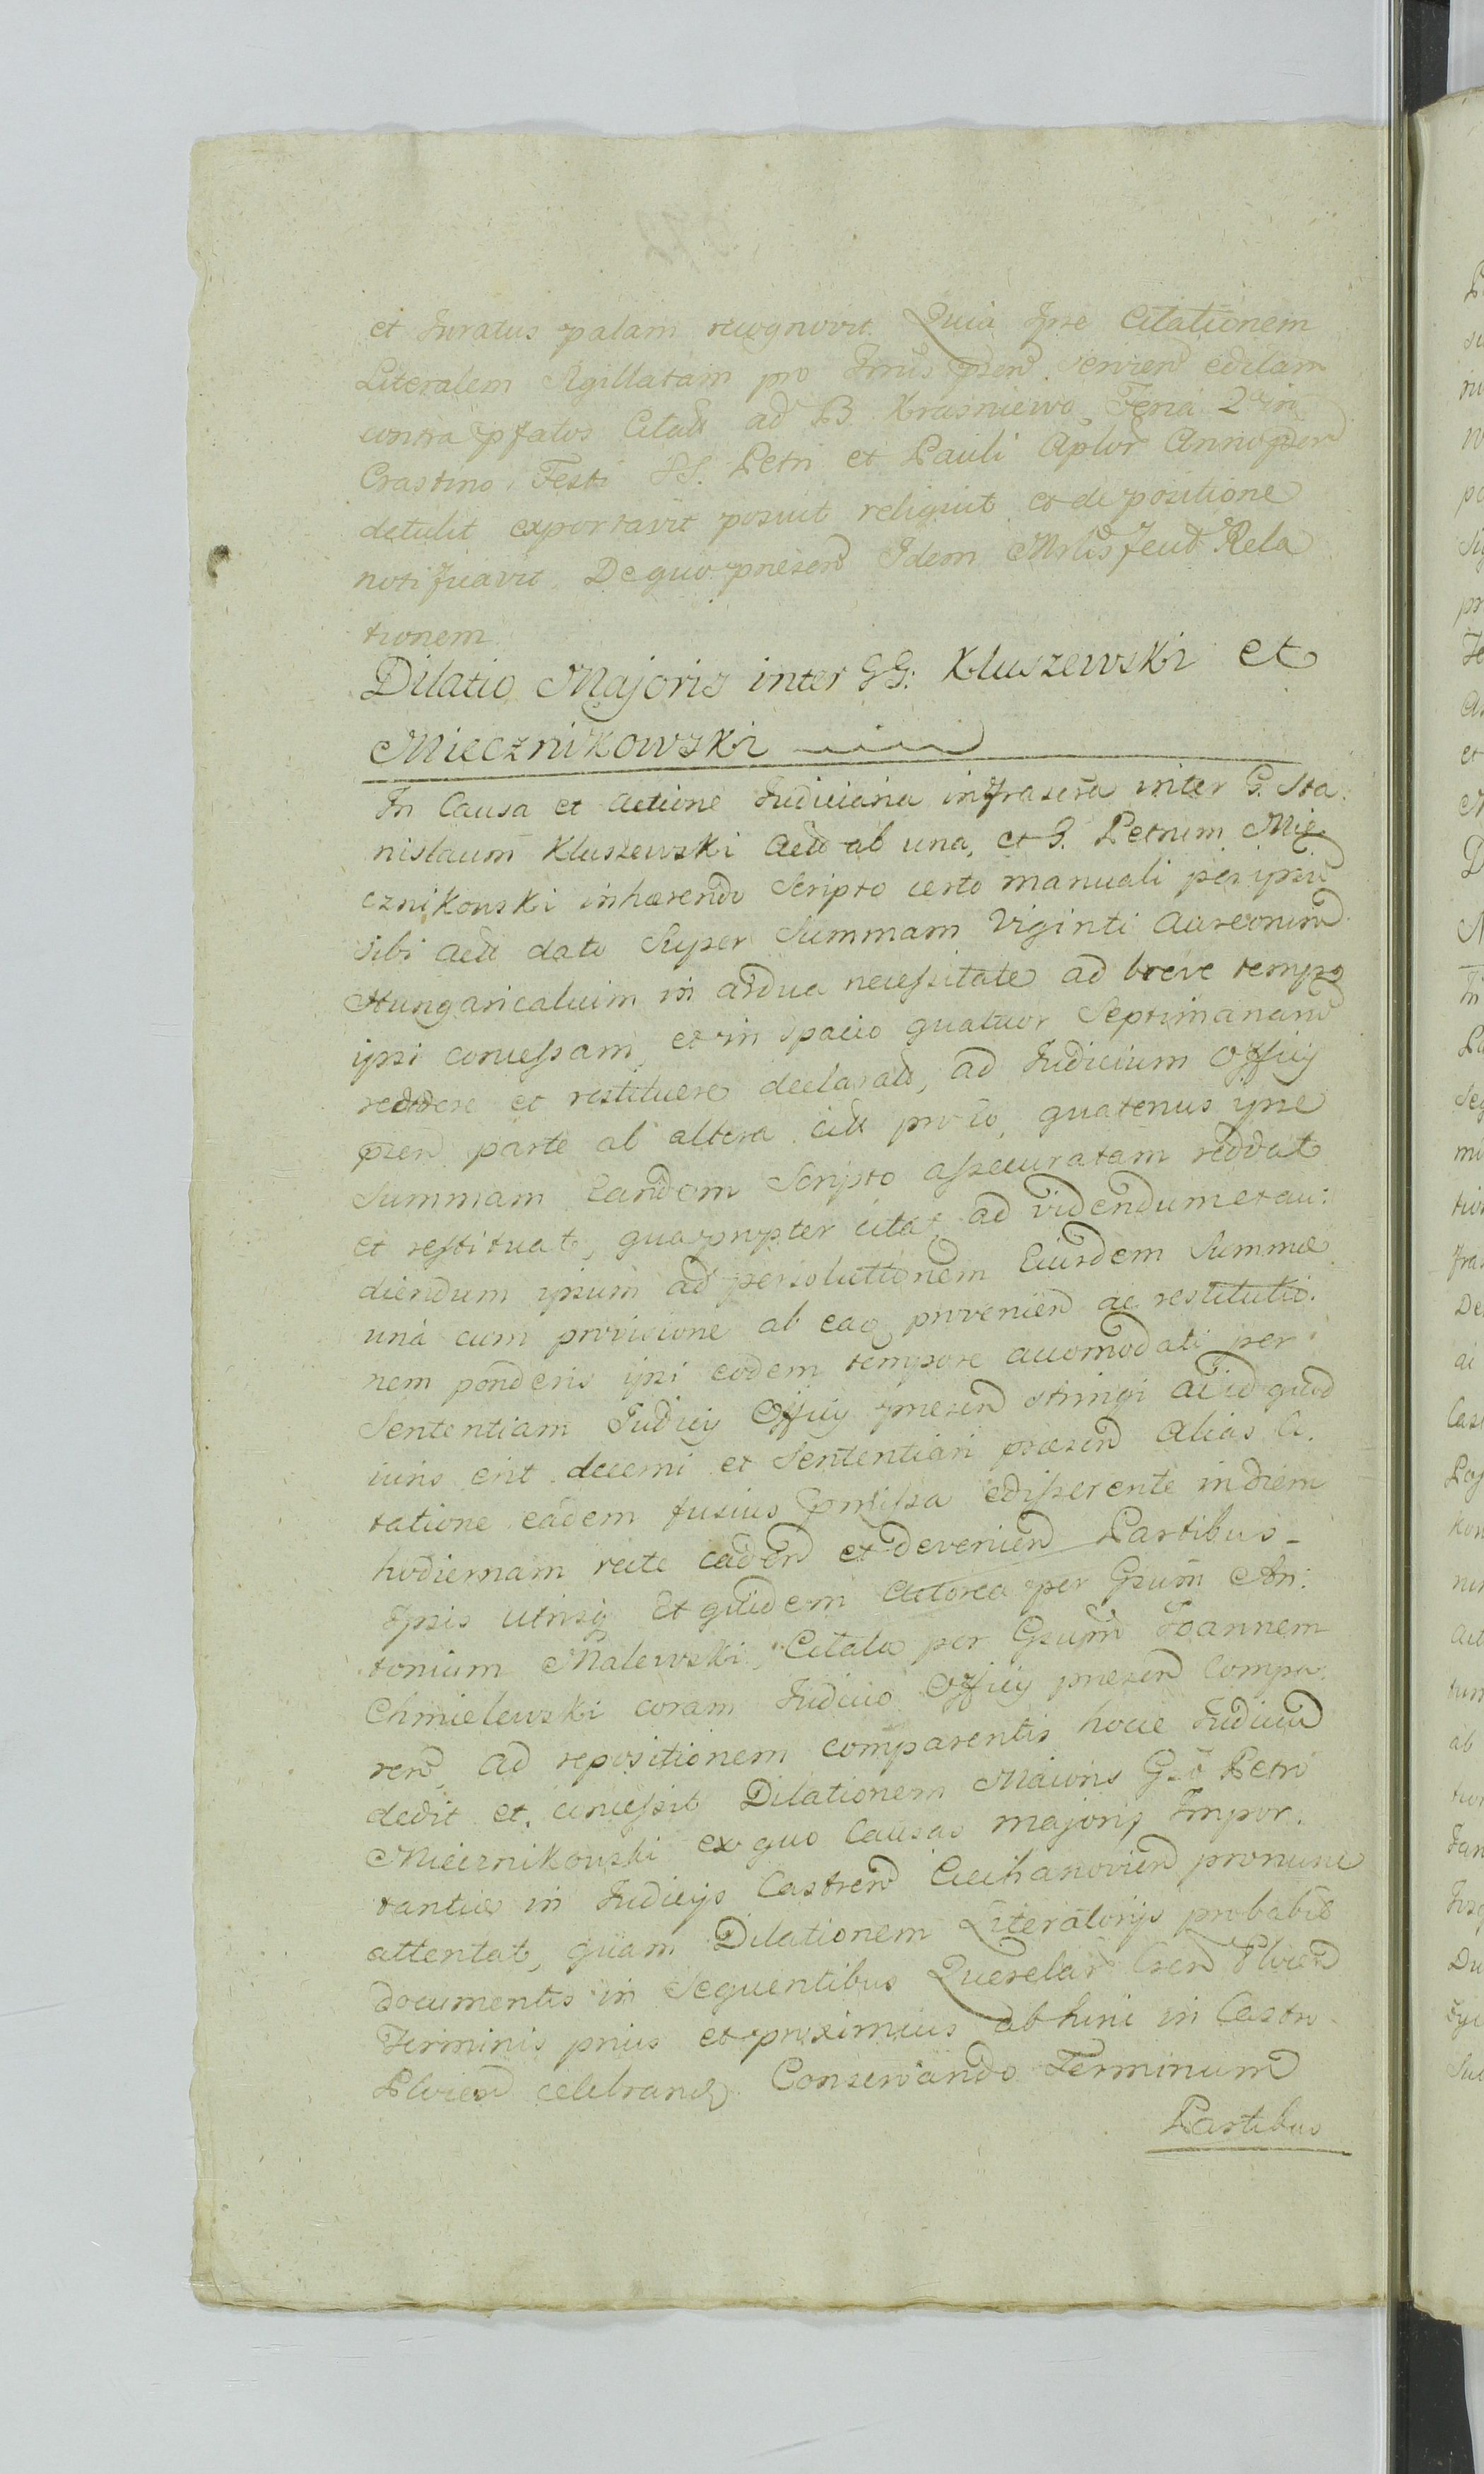 et Juratus palam recognovit. Quia Ipse Citationem
Literalem Sigillatam pro Trnis pzen servien editam
contra pfatos Citatt ad B. Krasniewo Feria 2da in
Crastino Festi SS. Petri et Pauli Aplor Anno pzen
detulit exportavit posuit reliquit et de positione
notificavit. De quo præsen Idem Mrlis fecit Rela
tionem
Dilatio Majoris inter GG. Kluszewski et
Miecznikowski
In Causa et actione Judiciaria infrascra inter G. Sta:
nislaum Kluszewski Act ab una, et G. Petrum Mie
cznikowski inhærendo Scripto certo manuali per ipsu
sibi Actt dato Super Summam Viginti Aureorum
Hungaricalium in ardua necessitate ad breve tempq
ipsi concessam, et in spacio quatuor Septimanaru
reddere et restituere declarat, ad Judicium Officy
pzen parte ab altera citt pro eo, quatenus ipse
Summam eandem Scripto assecuratam reddat
et restituat, quapropter citat ad videndum et au:
diendum ipsum ad persolutionem Eiusdem Summæ
una cum provisione ab eaq provenien ac restitutio:
nem ponderis ipsi eodem tempore accomodati per
Sententiam Judicy Officy præsen stringi ac id quod
iuris erit decerni et Sententiari præsen alias Ci:
tatione eadem fusius pmissa edisserente in diem
hodiernam recte caden et devenien Partibus
Ipsis utrisq Et quidem Actorea per Gsum An:
tonium Malewski, Citata per Gsum Joannem
Chmielewski coram Judicio Officy præsen Compa:
ren, ad repositionem comparentis hocce Judiciu
dedit et concessit Dilationem Maioris Gso Petro
Miecznikowski ex quo Causas majoris Impor:
tantiæ in Judicys Castren Ciechanovien pronunc
attentat, quam Dilationem Literatorys probabit
documentis in Sequentibus Querelar Cren Plocen
Terminis prius et proximius abhinc in Castro
Plocen celebrand. Conservando Terminum
Partibus